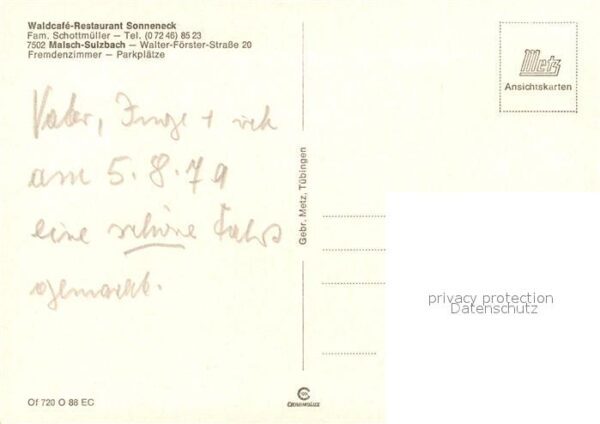 Waldcafé-Restaurant Sonneneck
Fam. Schottmüller – Tel. (0 72 46) 85 23
7502 Malsch-Sulzbach – Walter-Förster-Straße 20
Fremdenzimmer – Parkplätze
Metz
Ansichtskarten
Vater, Inge + ich
am 5.8.79
eine schöne Fahrt
gemacht.
Gebr. Metz, Tübingen
privacy protection
Datenschutz
Of 720 O 88 EC